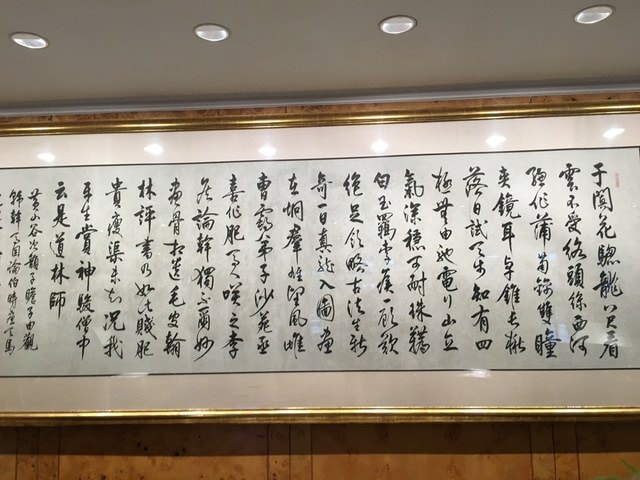 于闐花驄龍八尺看
雲不受絡頭絲西河
驄作蒲萄錦雙瞳
夾鏡耳卓錐長楸
落日試天步知有四
極無由馳電行山立
氣深穩可耐珠韉
白玉羈李侯一顧歎
絕足領略古法生新
奇一日真龍入圖畫
在坰群雄望風雌
曹霸弟子沙苑丞
喜作肥馬人笑之李
侯論幹獨不爾妙
畫骨相遺毛皮翰
林評書乃如此賤肥
貴瘦渠未知況我
平生賞神駿僧中
云是道林師
黃山谷次韻子瞻子由觀
韓幹馬因論伯時畫天馬